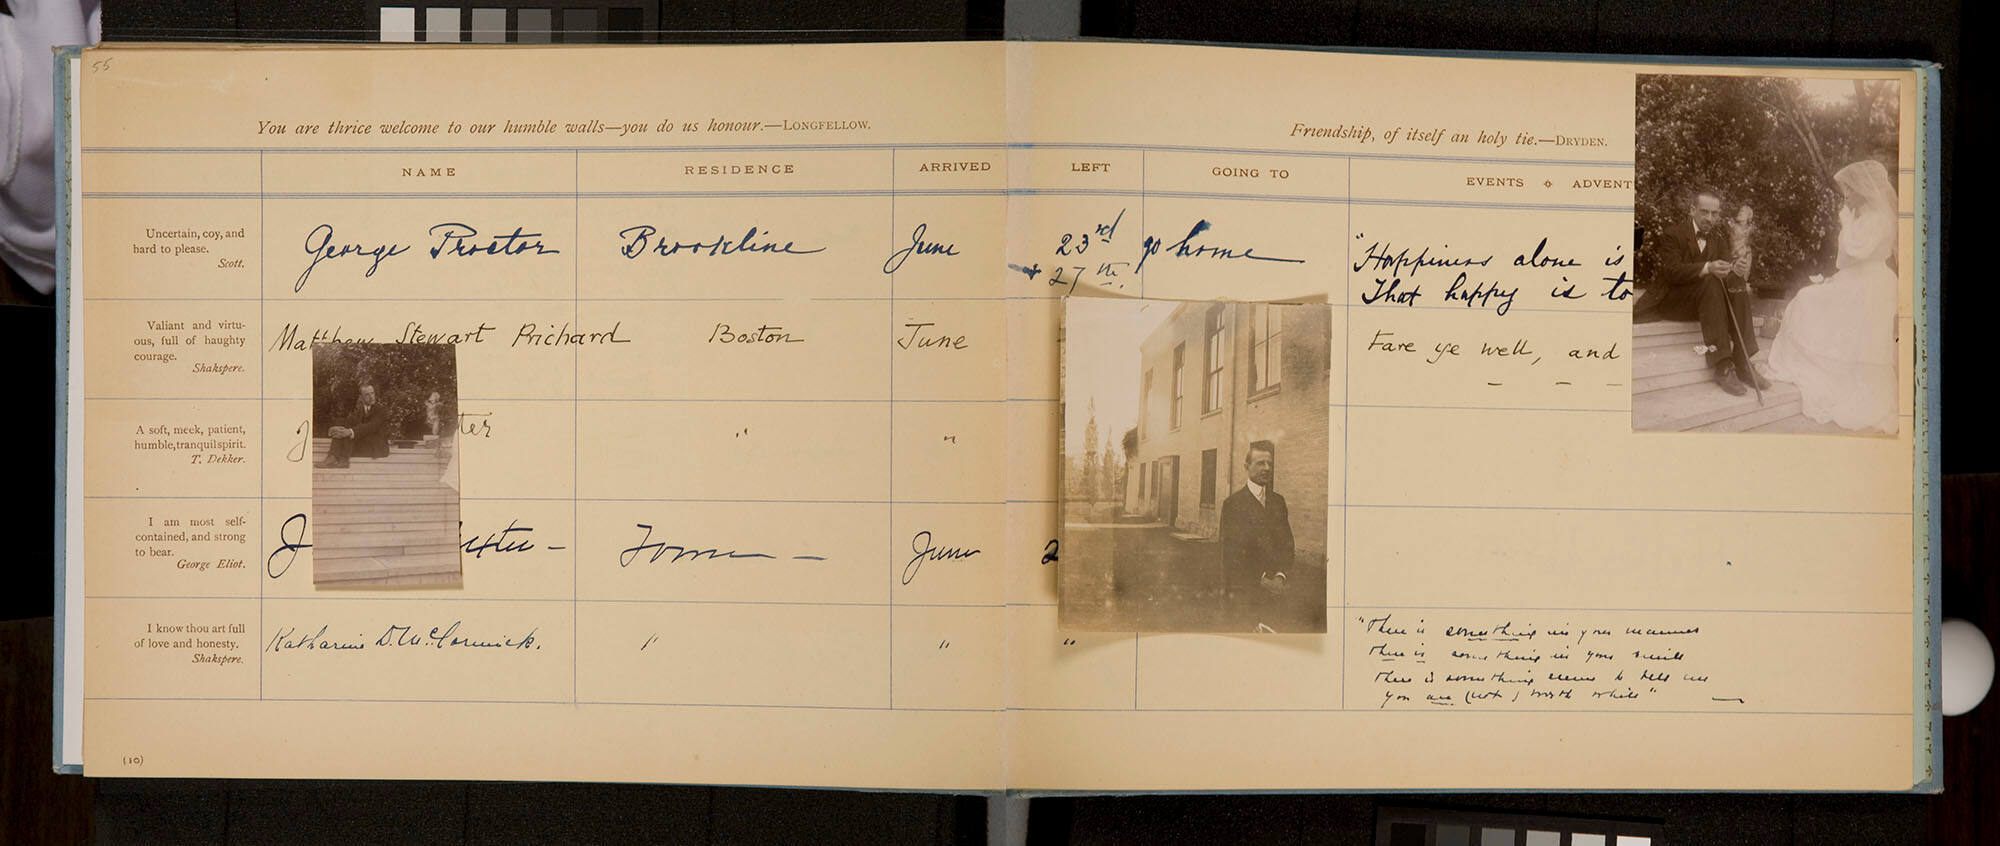 55
You are thrice welcome to our humble walls—you do us honour.—LONGFELLOW.
Friendship, of itself an holy tie.—DRYDEN.
NAME RESIDENCE ARRIVED LEFT GOING TO EVENTS ADVENT
Uncertain, coy, and
hard to please.
Scott.
George Proctor Brookline June 23rd go home
27th.
"Happiness alone is
That happy is to
Valiant and virtu-
ous, full of haughty
courage.
Shakspere.
Matthew Stewart Prichard Boston June
Fare ye well, and
— — —
A soft, meek, patient,
humble, tranquil spirit.
T. Dekker.
J ter " "
I am most self-
contained, and strong
to bear.
George Eliot.
J — June 2
I know thou art full
of love and honesty.
Shakspere.
Katharine D. McCormick. " " "
"There is something in your manner
There is something in your smile
There is something seems to tell me
You are (not) worth while" —
(10)